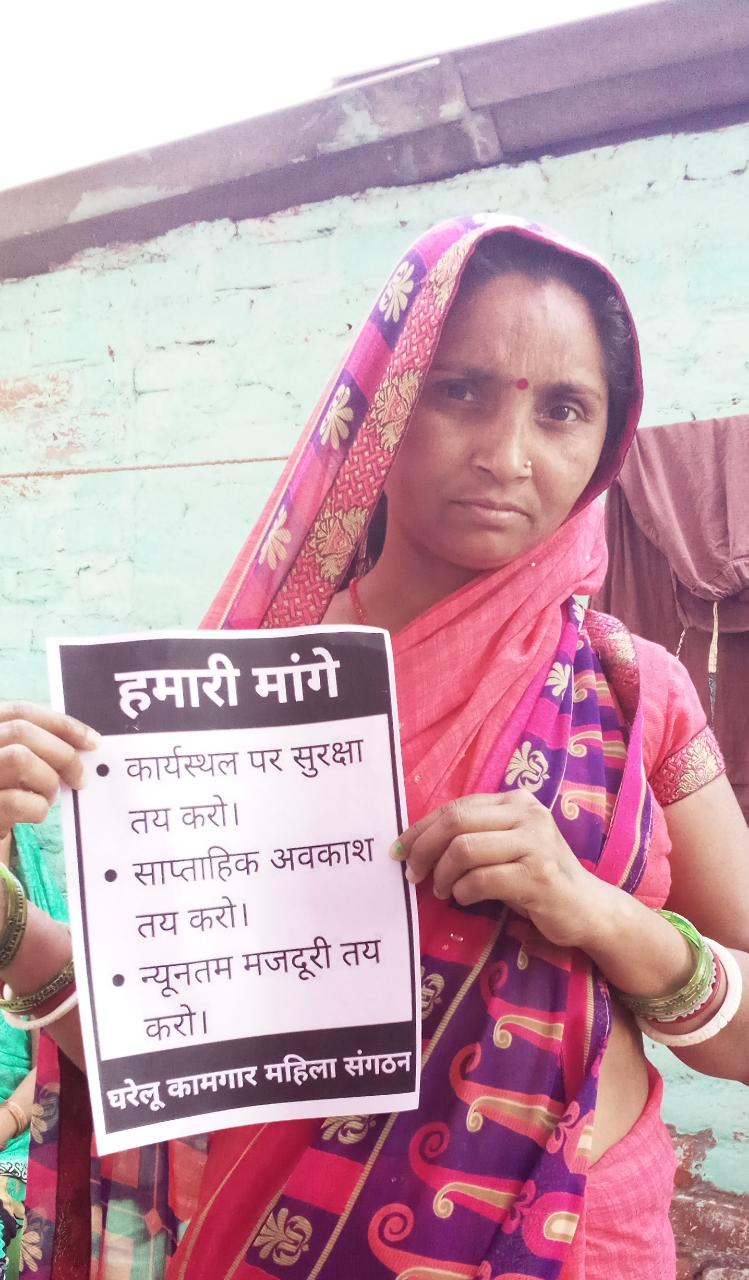 हमारी मांगे
• कार्यस्थल पर सुरक्षा
तय करो।
• साप्ताहिक अवकाश
तय करो।
• न्यूनतम मजदूरी तय
करो।
घरेलू कामगार महिला संगठन